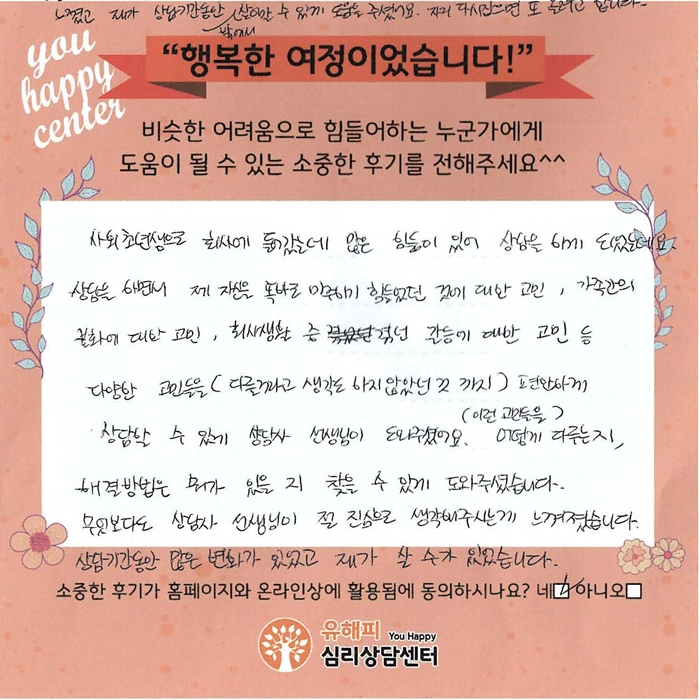 느꼈고 제가 상담기간동안 밖에서 살아갈 수 있게 도움을 주셨어요.
you
happy
center
“행복한 여정이었습니다!”
비슷한 어려움으로 힘들어하는 누군가에게
도움이 될 수 있는 소중한 후기를 전해주세요^^
사회초년생으로 회사에 들어갔는데 많은 힘듦이 있어 상담을 하게 되었는데요.
상담을 하면서 제 자신을 똑바로 마주하기 힘들었던 것에 대한 고민, 가족간의
불화에 대한 고민, 회사생활 중 겪던 갈등에 대한 고민 등
다양한 고민들을 (다룰거라고 생각도 하지 않았던 것 까지) 편안하게
상담할 수 있게 상담사 선생님이 도와주셨어요. (이런 고민들을) 어떻게 다루는지,
해결방법은 뭐가 있을 지 찾을 수 있게 도와주셨습니다.
무엇보다도 상담사 선생님이 절 진심으로 생각해주시는게 느껴졌습니다.
상담기간동안 많은 변화가 있었고 제가 살 수가 있었습니다.
소중한 후기가 홈페이지와 온라인상에 활용됨에 동의하시나요? 네☑ 아니오□
유해피 You Happy
심리상담센터